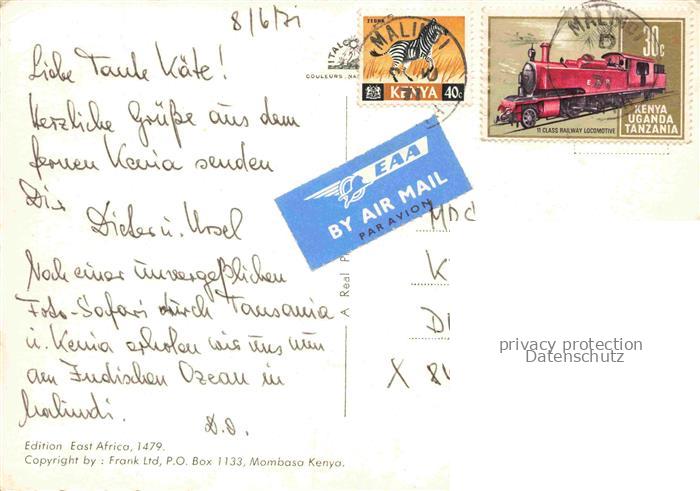 8/6/71
Liebe Tante Käte!
Herzliche Grüße aus dem
fernen Kenia senden
Dir
Dieter u. Ursel
Nach einer unvergeßlichen
Foto-Safari durch Tansania
u. Kenia erholen wir uns nun
am Indischen Ozean in
Malindi.
D.O.
Edition East Africa, 1479.
Copyright by : Frank Ltd, P.O. Box 1133, Mombasa Kenya.
COULEURS
A Real
ZEBRA
MALINDI
KENYA 40c
MALINDI
30c
KENYA
UGANDA
TANZANIA
11 CLASS RAILWAY LOCOMOTIVE
EAA
BY AIR MAIL
PAR AVION
privacy protection
Datenschutz